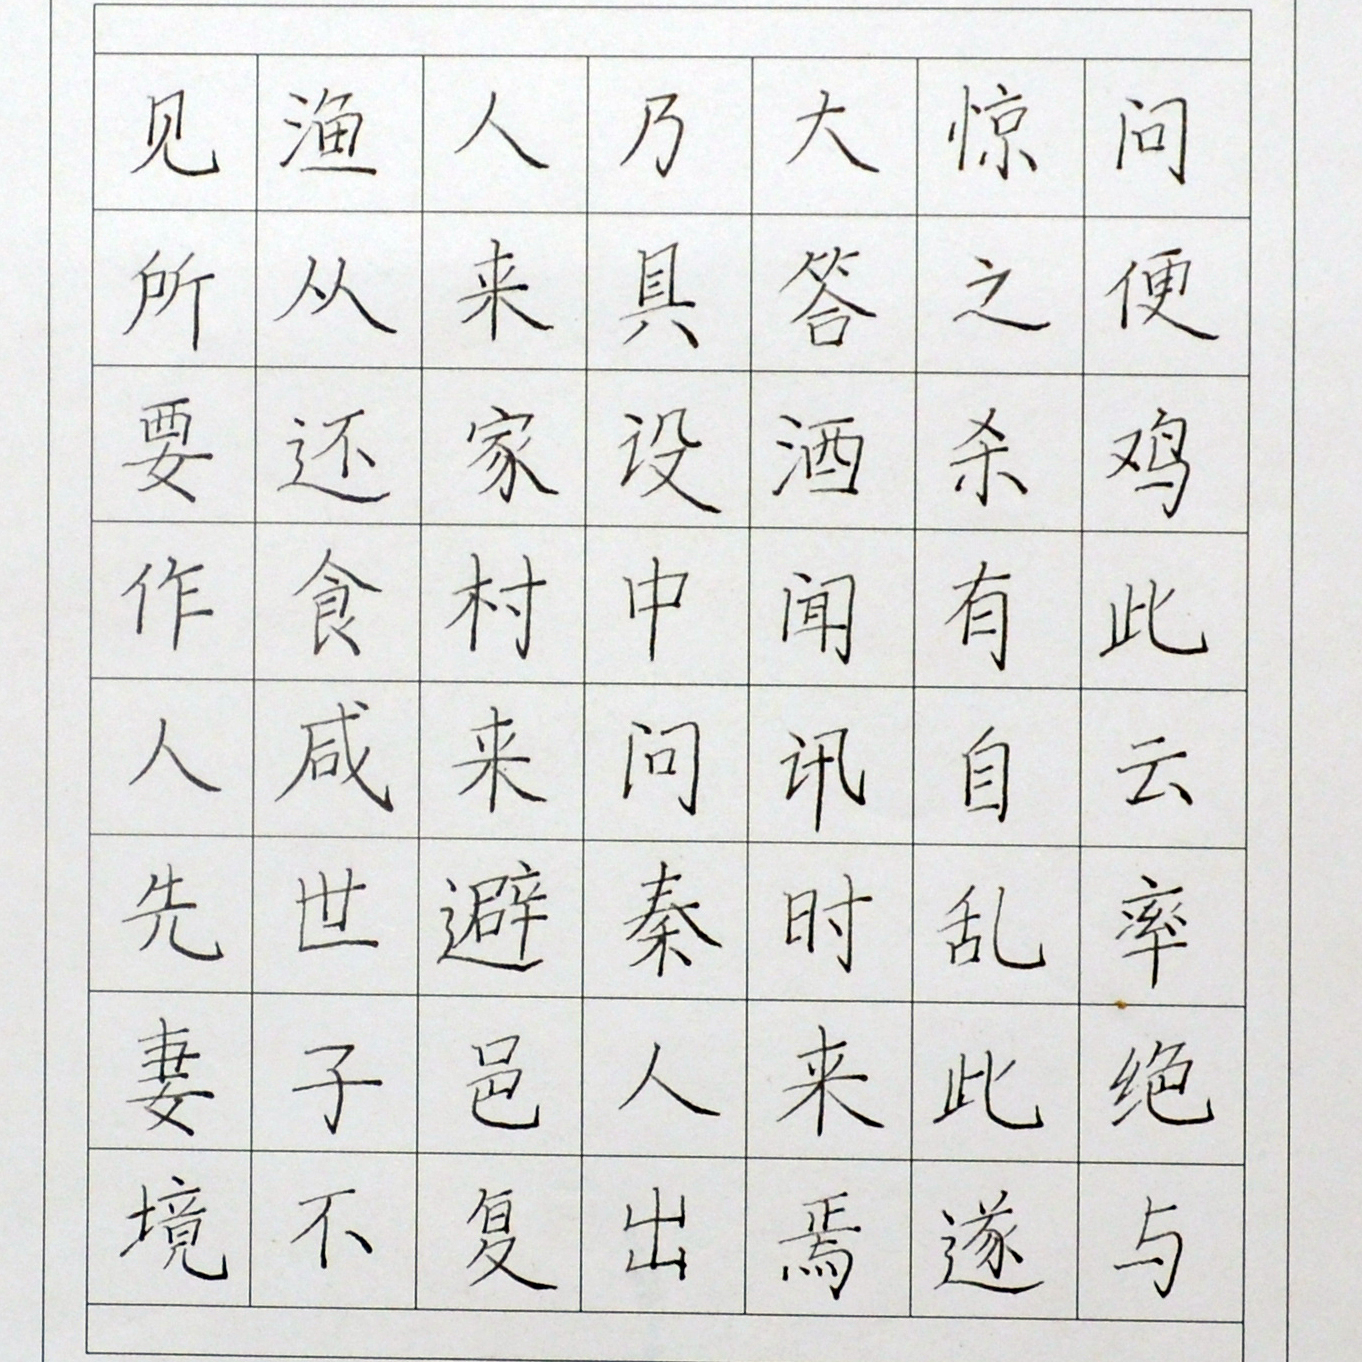 见渔人乃大惊问
所从来具答之便
要还家设酒杀鸡
作食村中闻有此
人咸来问讯自云
先世避秦时乱率
妻子邑人来此绝
境不复出焉遂与